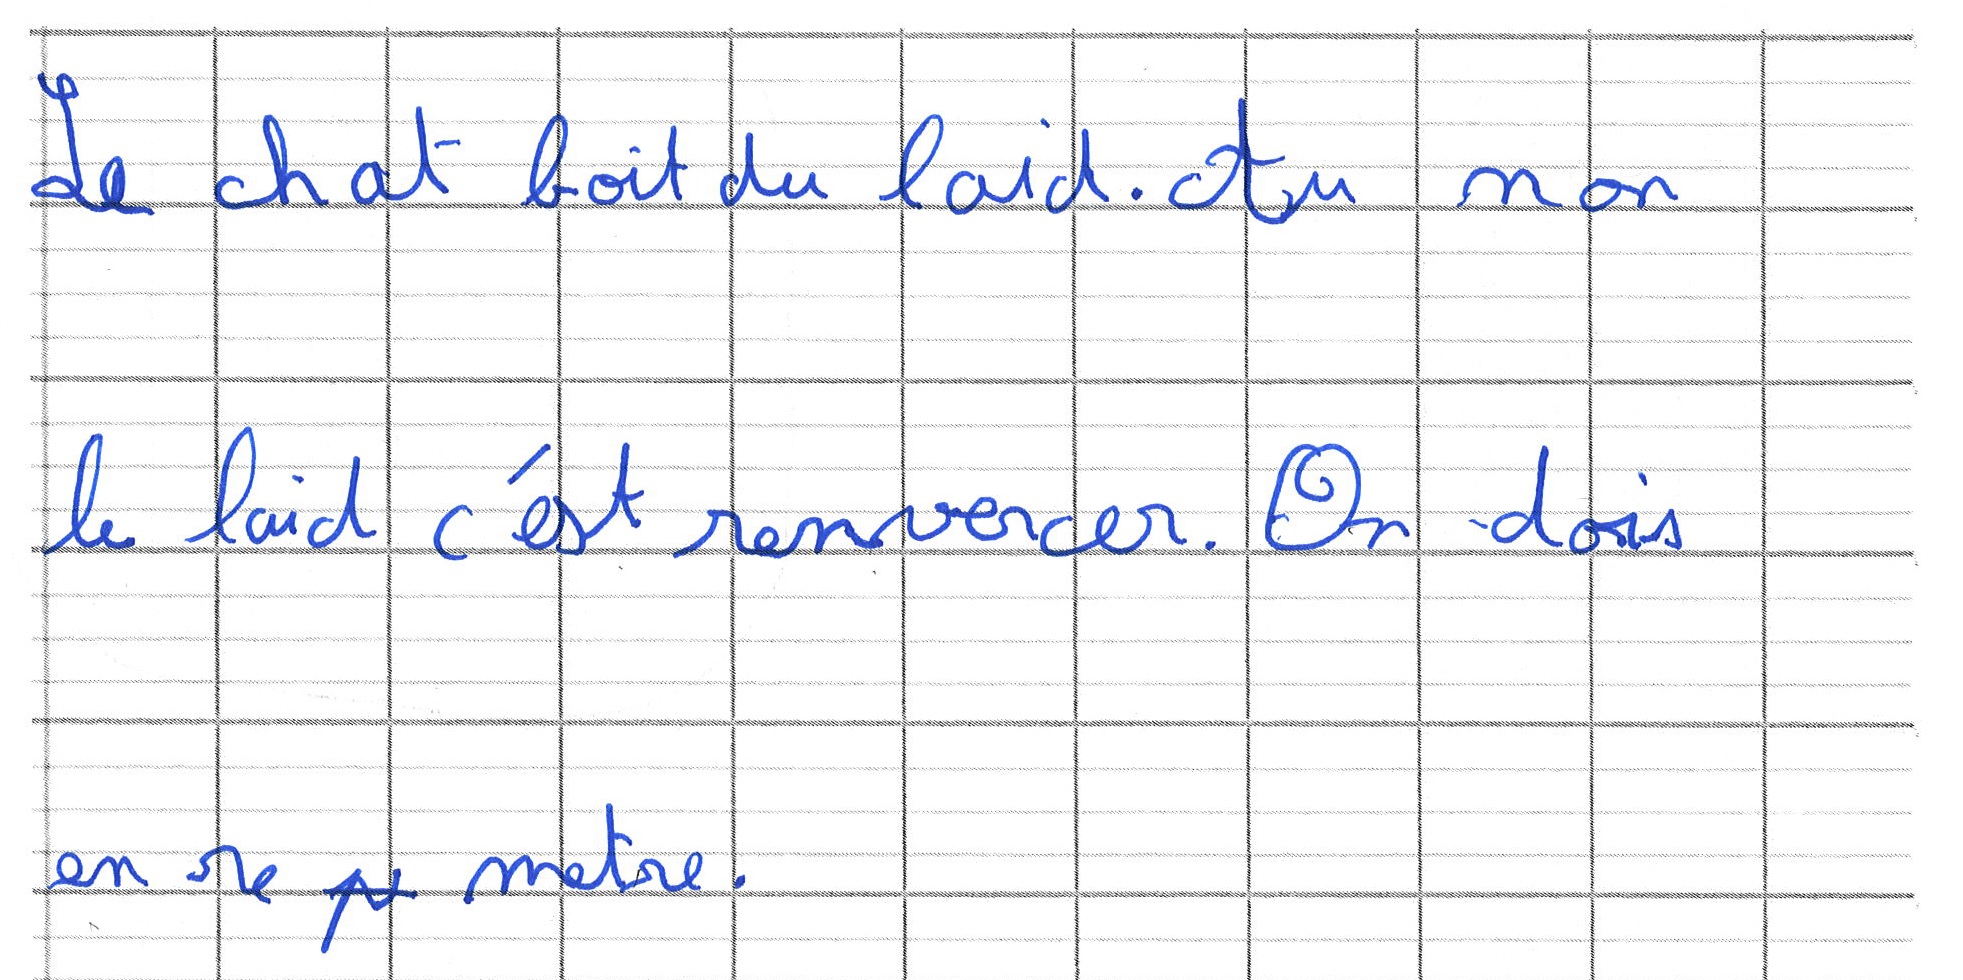 Le chat boit du laid. Au non
le laid c'ést renvercer. On dois
en re metre.